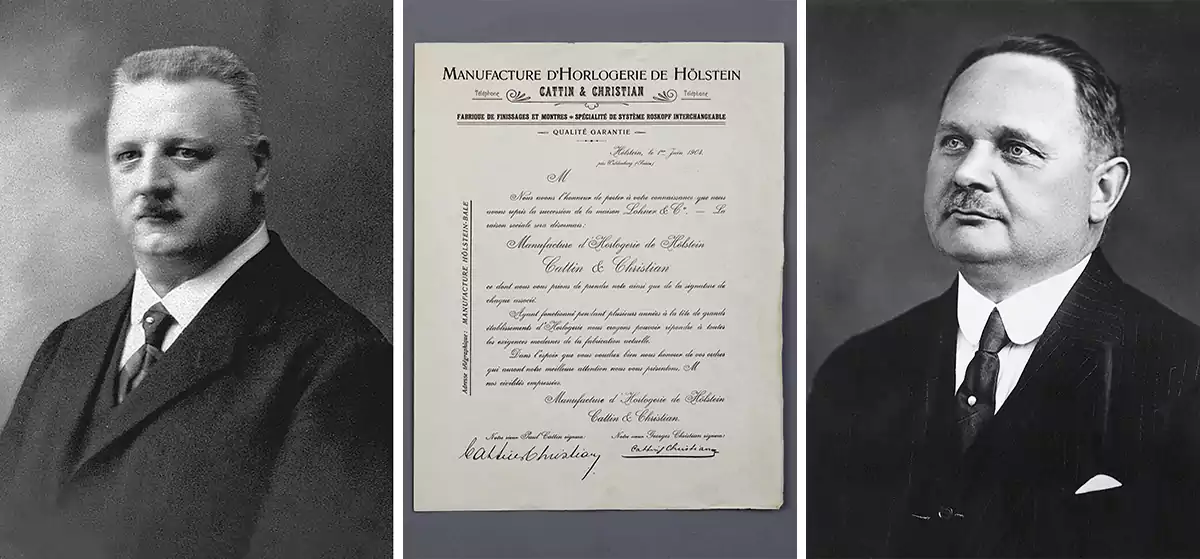 MANUFACTURE D'HORLOGERIE DE HÖLSTEIN
Téléphone CATTIN & CHRISTIAN Téléphone
FABRIQUE DE FINISSAGES ET MONTRES = SPÉCIALITÉ DE SYSTÈME ROSKOPF INTERCHANGEABLE
QUALITÉ GARANTIE
Hölstein, le 1er Juin 1904.
par Waldenburg (Suisse)
M
Nous avons l'honneur de porter à votre connaissance que nous
avons repris la succession de la maison Lohrer & Cie. — La
raison sociale sera désormais:
Manufacture d'Horlogerie de Hölstein
Cattin & Christian
ce dont nous vous prions de prendre note ainsi que de la signature de
chaque associé.
Ayant fonctionné pendant plusieurs années à la tête de grands
établissements d'Horlogerie nous croyons pouvoir répondre à toutes
les exigences modernes de la fabrication actuelle.
Dans l'espoir que vous voudrez bien nous honorer de vos ordres
qui auront notre meilleure attention nous vous présentons, M
nos civilités empressées.
Manufacture d'Horlogerie de Hölstein
Cattin & Christian.
Notre sieur Paul Cattin signera: Notre sieur Georges Christian signera:
Cattin & Christian Cattin & Christian
Adresse télégraphique: MANUFACTURE HÖLSTEIN-BALE